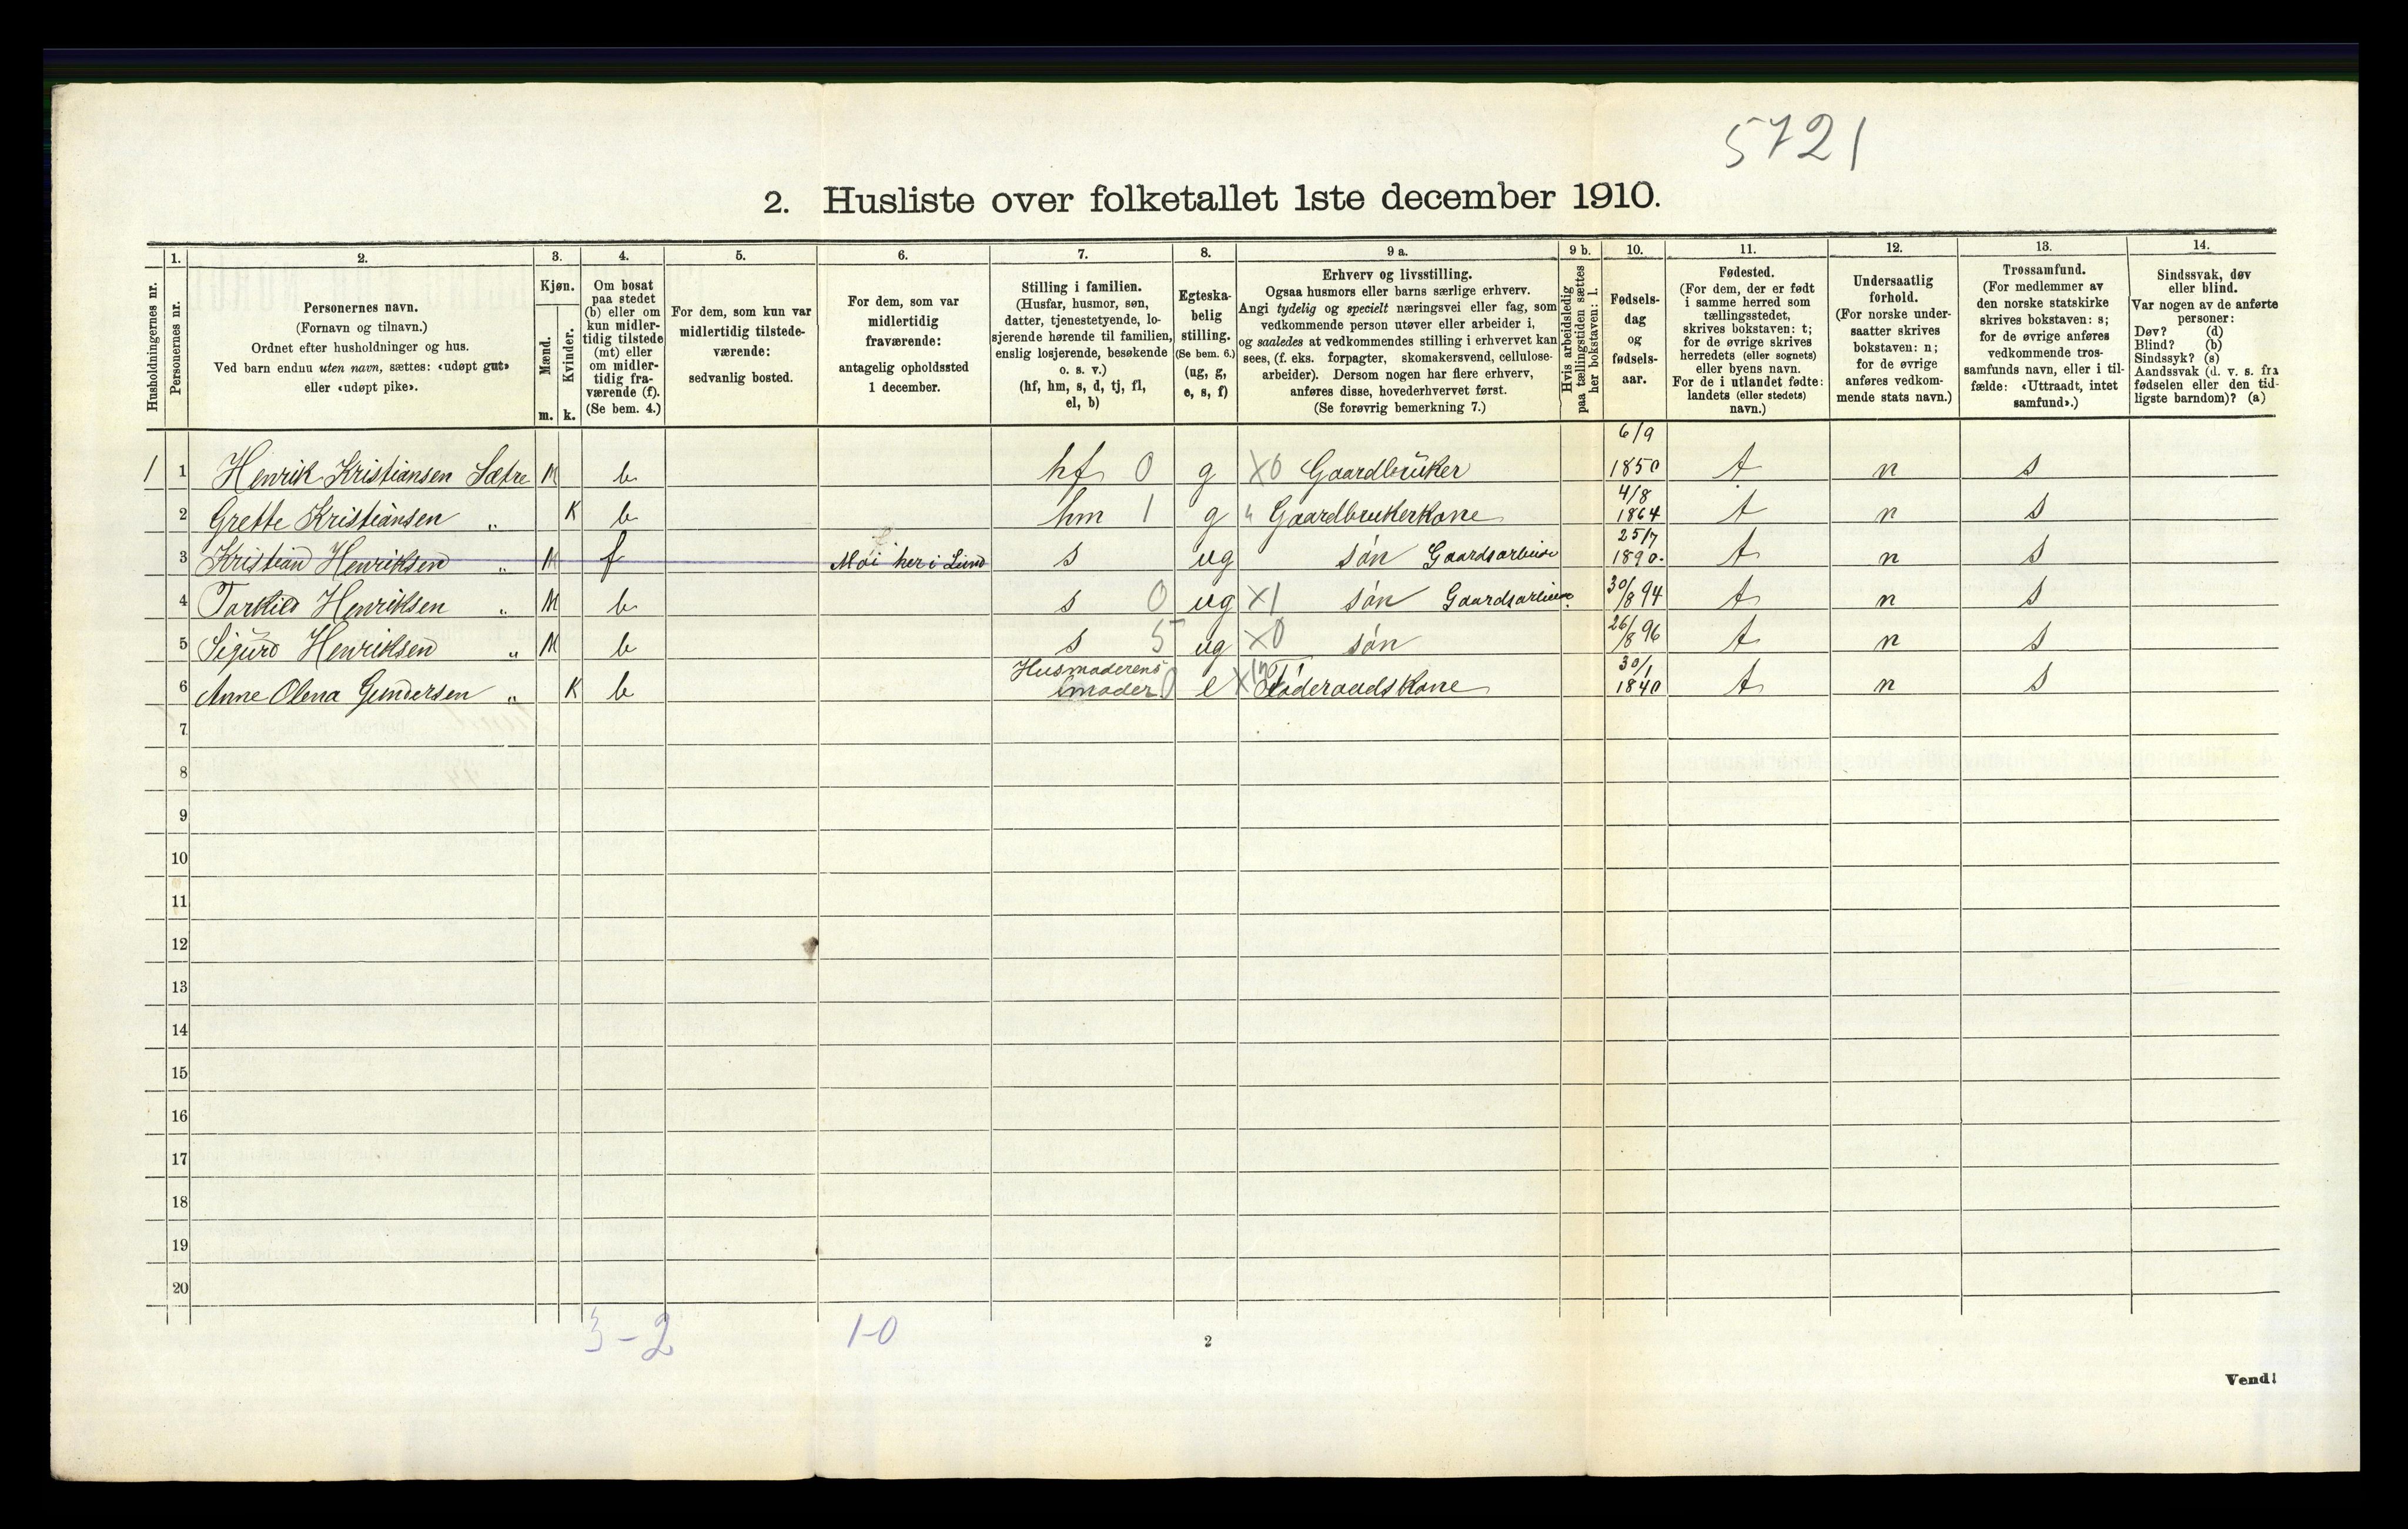 5721
2. Husliste over folketallet 1ste december 1910.
Husholdningernes nr.
1.
Personernes nr.
2.
Personernes navn.
(Fornavn og tilnavn.)
Ordnet efter husholdninger og hus.
Ved barn endnu uten navn, sættes: «udøpt gut»
eller «udøpt pike».
3.
Kjøn.
Mænd.
Kvinder.
m. k.
4.
Om bosat
paa stedet
(b) eller om
kun midler-
tidig tilstede
(mt) eller
om midler-
tidig fra-
værende (f).
(Se bem. 4.)
5.
For dem, som kun var
midlertidig tilstede-
værende:
sedvanlig bosted.
6.
For dem, som var
midlertidig
fraværende:
antagelig opholdssted
1 december.
7.
Stilling i familien.
(Husfar, husmor, søn,
datter, tjenestetyende, lo-
sjerende hørende til familien,
enslig losjerende, besøkende
o. s. v.)
(hf, hm, s, d, tj, fl,
el, b)
8.
Egteska-
belig
stilling.
(Se bem. 6.)
(ug, g,
e, s, f)
9 a.
Erhverv og livsstilling.
Ogsaa husmors eller barns særlige erhverv.
Angi tydelig og specielt næringsvei eller fag, som
vedkommende person utøver eller arbeider i,
og saaledes at vedkommendes stilling i erhvervet kan
sees, (f. eks. forpagter, skomakersvend, cellulose-
arbeider). Dersom nogen har flere erhverv,
anføres disse, hovederhvervet først.
(Se forøvrig bemerkning 7.)
9 b.
Hvis arbeidsledig
paa tællingstiden sættes
her bokstaven: l.
10.
Fødsels-
dag
og
fødsels-
aar.
11.
Fødested.
(For dem, der er født
i samme herred som
tællingsstedet,
skrives bokstaven: t;
for de øvrige skrives
herredets (eller sognets)
eller byens navn.
For de i utlandet fødte:
landets (eller stedets)
navn.)
12.
Undersaatlig
forhold.
(For norske under-
saatter skrives
bokstaven: n;
for de øvrige
anføres vedkom-
mende stats navn.)
13.
Trossamfund.
(For medlemmer av
den norske statskirke
skrives bokstaven: s;
for de øvrige anføres
vedkommende tros-
samfunds navn, eller i til-
fælde: «Uttraadt, intet
samfund».)
14.
Sindssvak, døv
eller blind.
Var nogen av de anførte
personer:
Døv? (d)
Blind? (b)
Sindssyk? (s)
Aandssvak (d. v. s. fra
fødselen eller den tid-
ligste barndom)? (a)
1 1 Henrik Kristiansen Sætre M b hf 0 g X0 Gaardbrúker 6/9 1850 t n s
2 Grette Kristiansen " K b hm 1 g " Gaardbrukerkone 4/8 1864 t n s
3 Kristian Henriksen " M f Moi her i Lund s ug søn Gaardsarbeise 25/7 1890. t n s
4 Tarkild Henriksen " M b s 0 ug X1 søn 30/8 94 t n s
5 Sigurd Henriksen " M b s 5 ug X0 søn 26/8 96 t n s
6 Anne Olena Gundersen " K b Husmoderens moder 0 e X Føderaadskone 30/1 1840 t n s
7
8
9
10
11
12
13
14
15
16
17
18
19
20
3-2 1-0
2
Vend!